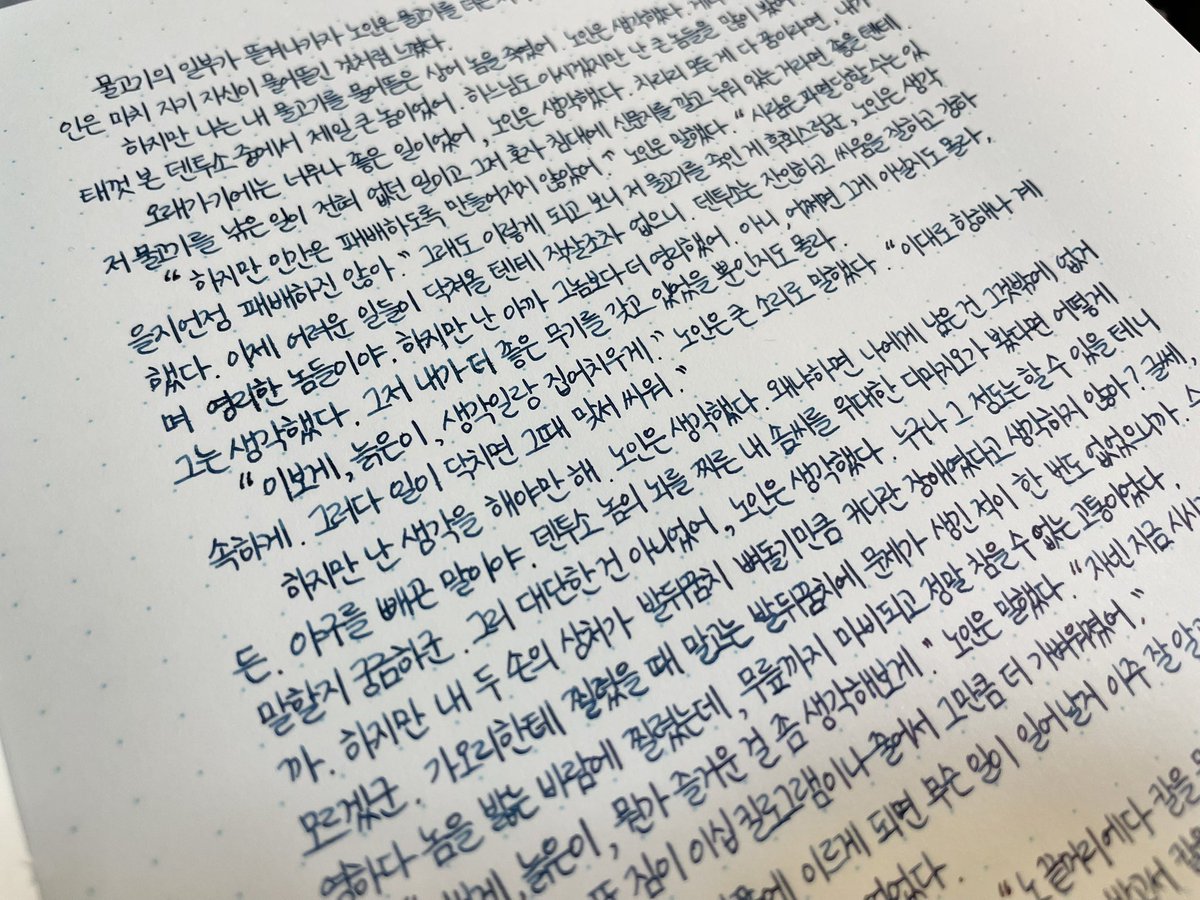 물고기의 일부가 뜯겨나가자 노인은 물고기를 더는
인은 마치 자기 자신이 물어뜯긴 것처럼 느꼈다.
하지만 나는 내 물고기를 물어뜯은 상어 놈을 죽였어. 노인은 생각했다.
태껏 본 덴투소 중에서 제일 큰 놈이었어. 하느님도 아시겠지만 난 큰 놈들을 많이 봤어.
오래가기에는 너무나 좋은 일이었어, 노인은 생각했다. 차라리 모든 게 다 꿈이라면, 내가
저 물고기를 낚은 일이 전혀 없던 일이고 그저 혼자 침대에 신문지를 깔고 누워 있는 거라면 좋을 텐데
“하지만 인간은 패배하도록 만들어지지 않았어.” 노인은 말했다. “사람은 파멸당할 수는 있
을지언정 패배하진 않아.” 그래도 이렇게 되고 보니 저 물고기를 죽인 게 후회스럽군, 노인은 생각
했다. 이제 어려운 일들이 닥쳐올 텐데 작살조차 없으니. 덴투소는 잔인하고 싸움을 잘하고 강하
며 영리한 놈들이야. 하지만 난 아까 그놈보다 더 영리했어. 아니, 어쩌면 그게 아닐지도 몰라,
그는 생각했다. 그저 내가 더 좋은 무기를 갖고 있었을 뿐인지도 몰라.
“이보게, 늙은이, 생각일랑 집어치우게.” 노인은 큰 소리로 말했다. “이대로 항해나 계
속하게. 그러다 일이 닥치면 그때 맞서 싸워.”
하지만 난 생각을 해야만 해. 노인은 생각했다. 왜냐하면 나에게 남은 건 그것밖에 없거
든. 야구를 빼곤 말이야. 덴투소 놈의 뇌를 찌른 내 솜씨를 위대한 디마지오가 봤다면 어떻게
말할지 궁금하군. 그리 대단한 건 아니었어, 노인은 생각했다. 누구나 그 정도는 할 수 있을 테니
까. 하지만 내 두 손의 상처가 발뒤꿈치 뼈돌기만큼 커다란 장애였다고 생각하지 않아? 글쎄,
모르겠군. 가오리한테 찔렸을 때 말고는 발뒤꿈치에 문제가 생긴 적이 한 번도 없었으니까.
영하다 놈을 밟는 바람에 찔렸는데, 무릎까지 마비되고 정말 참을 수 없는 고통이었다.
늙은이, 뭔가 즐거운 걸 좀 생각해보게.” 노인은 말했다. “자넨 지금
짐이 이십 킬로그램이나 줄어서 그만큼 더 가벼워졌어.”
이르게 되면 무슨 일이 일어날지 아주 잘 알
“노 끝머리에다 칼을